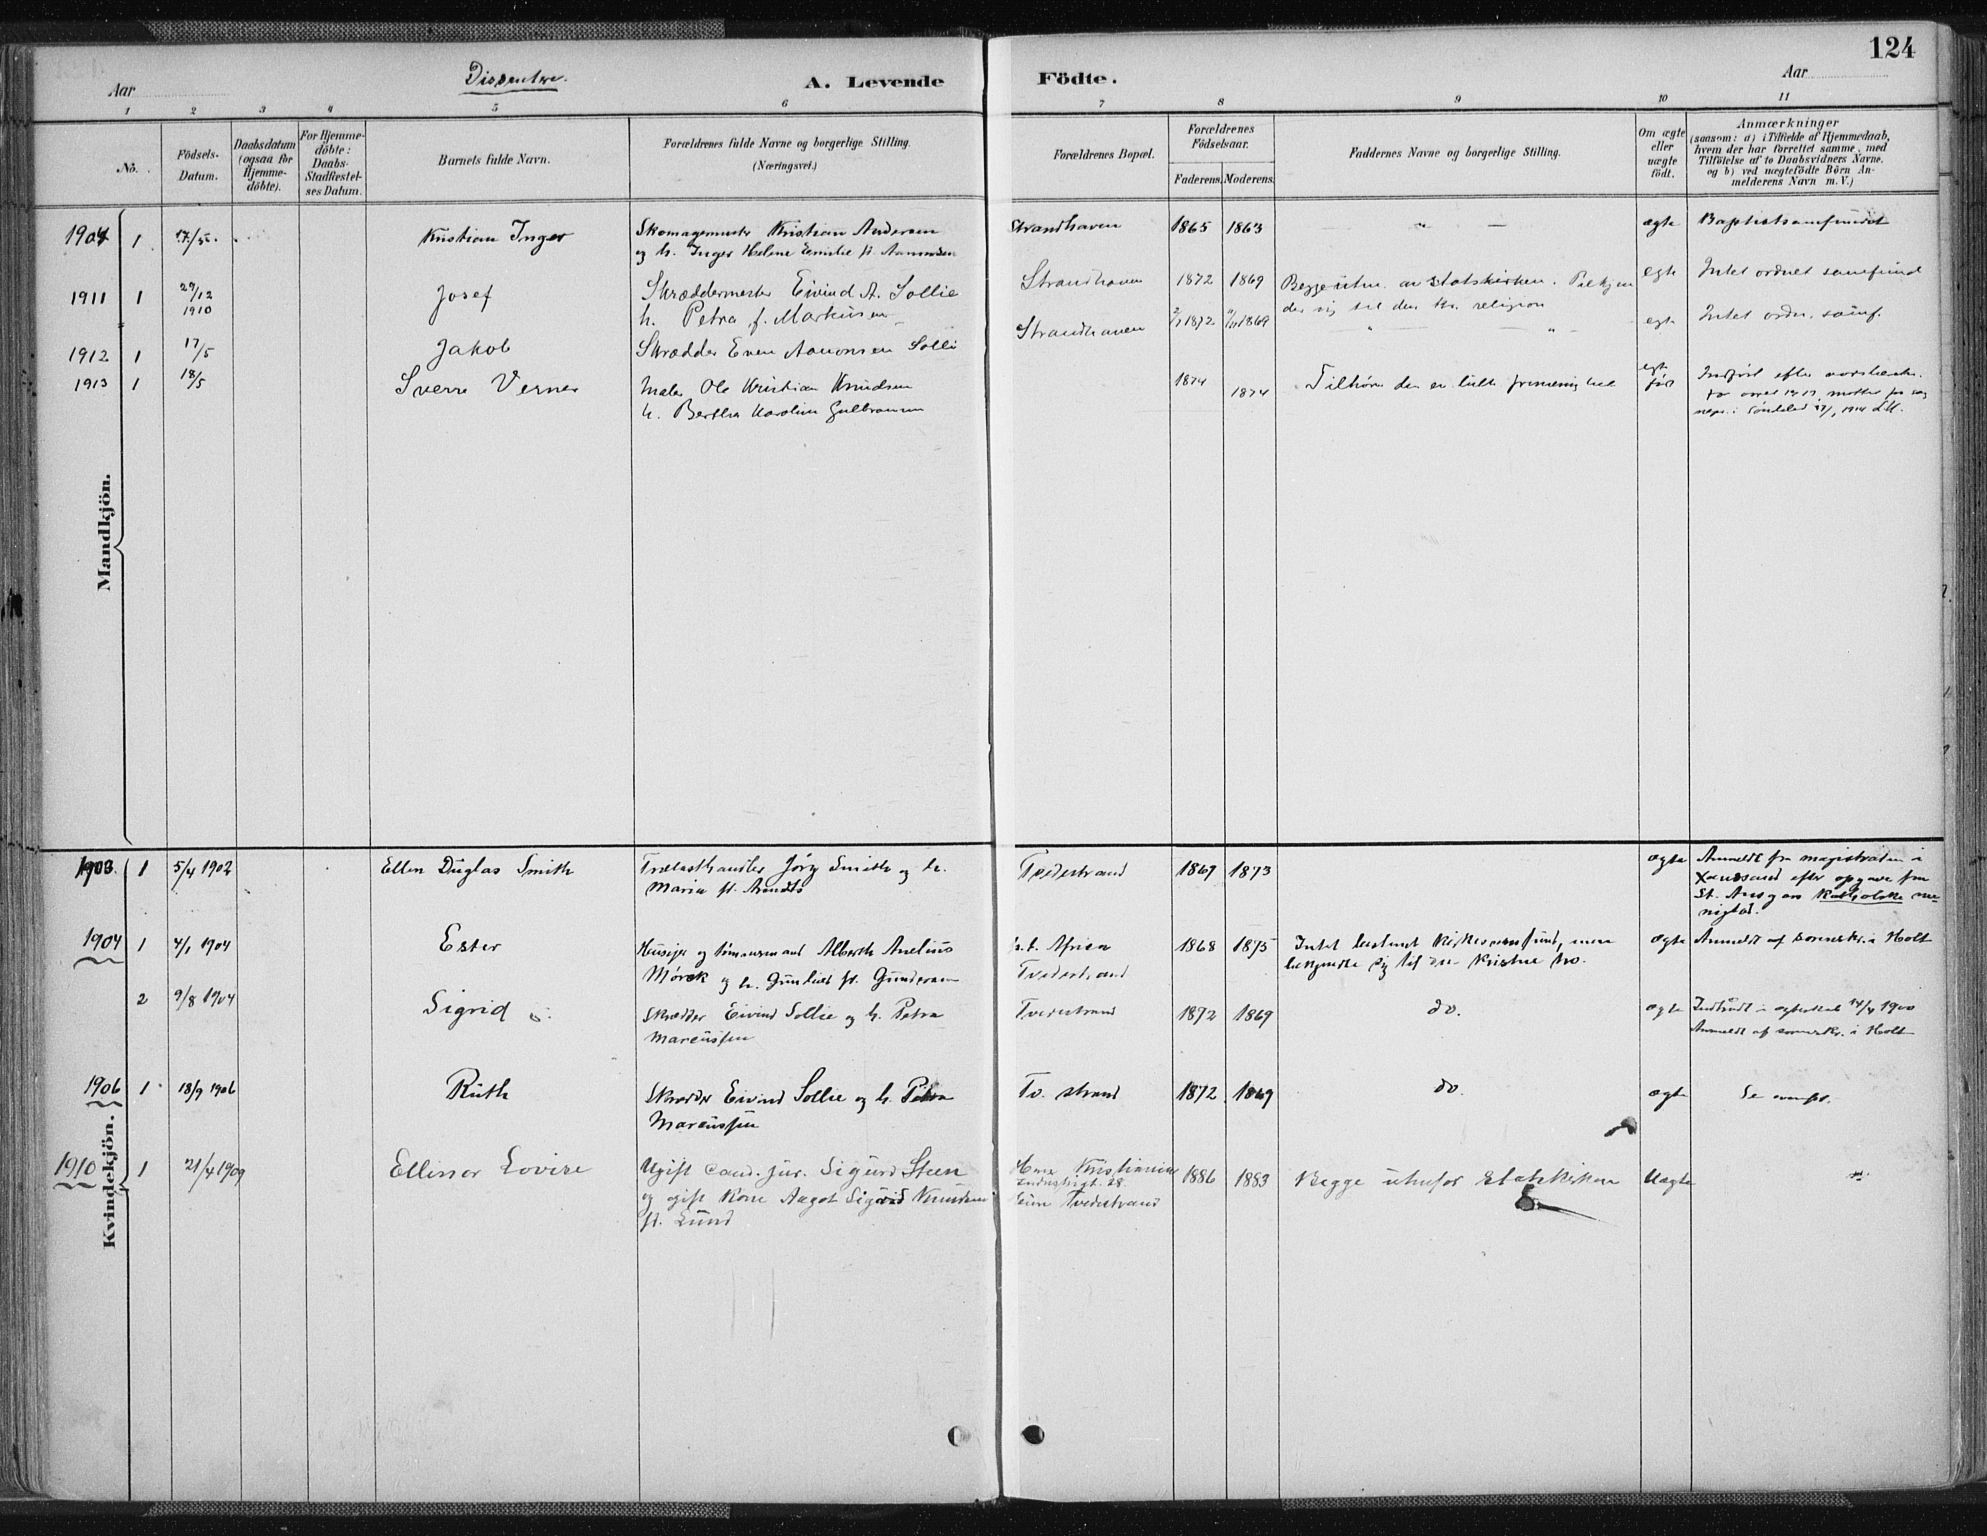 124
Dissentere.
Aar
A. Levende
Födte.
Aar
1 2 3 4 5 6 7 8 9 10 11
No.
Födsels-
Datum.
Daabsdatum
(ogsaa for
Hjemme-
döbte).
For Hjemme-
döbte:
Daabs-
Stadfæstel-
ses Datum.
Barnets fulde Navn.
Forældrenes fulde Navne og borgerlige Stilling.
(Næringsvei.)
Forældrenes Bopæl.
Forældrenes
Födselsaar.
Faderens. Moderens.
Faddernes Navne og borgerlige Stilling.
Om ægte
eller
uægte
födt.
Anmærkninger
(saasom: a) i Tilfælde af Hjemmedaab,
hvem der har forrettet samme, med
Tilföielse af to Daabsvidners Navne,
og b) ved uægtefödte Börn An-
melderens Navn m. V.)
Mandkjön.
1904 1 17/5. Kristian Inger Skomagermester Kristian Andersen Strandhaven 1865 1863 " — ægte Baptistsamfundet
og h. Inger Helene Emilie f. Aanonsen
1911 1 29/12 1910 Josef Skræddermester Eivind A. Sollie Strandhaven 1872 1869 Begge utm. av Statskirken. egte Intet ordnet samfund
h. Petra f. Markusen der sig til den kr. religion
1912 1 17/5 Jakob Skrædder Even Aanonsen Solli Strandhaven 1872 1869 " — " egte Intet ordn. samf.
1913 1 18/5 Sverre Verner Maler Ole Kristian Knudsen 1874 1874 Tilhører den ev. luth. frimenighet egte fød Indført efter
h. Bertha Karoline Gulbransen
Søndeled 1914
Kvindekjön.
1903 1 5/4 1902 Ellen Duglas Smith Trælasthandler Jörg Smith og h. Tvedestrand 1867 1873 ægte Anmeldt fra magistraten i
Maria f. Arndts Xansand efter opgave fra
St. Ansgars Katholske me-
nighed.
1904 1 4/1 1904 Ester Huseier og tømmermand Alberth Anelius 1868 1875 Intet bestemt Kirkesamfund, men ægte Anmeldt af i Holt
Mørck og h. f. Gundersen Tvedestrand bekjendte sig til den Kristne tro.
2 9/8 1904 Sigrid Skrædder Eivind Sollie og h. Petra Tvedestrand 1872 1869 do. ægte Indtraadt i ægteskab 14/4 1900
Marcussen Anmeldt af i Holt
1906 1 18/9 1906 Ruth Skrædder Eivind Sollie og h. Petra Tv. strand 1872 1869 do. ægte Se ovenfor.
Marcussen
1910 1 21/4 1909 Ellinor Lovise Ugift Cand. jur. Sigurd Steen Kristiania 1886 1883 Begge utenfor Statskirken Uægte "
og gift Kone Aagot Sigrid Knudsen Industrigt. 28
f. Lund Tvedestrand